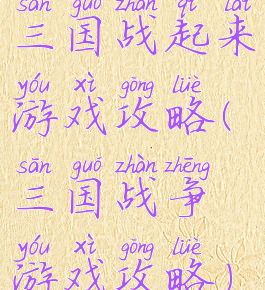 sān guó zhàn qǐ lái
三国战起来
yóu xì gōng lüè
游戏攻略(
sān guó zhàn zhēng
三国战争
yóu xì gōng lüè
游戏攻略)